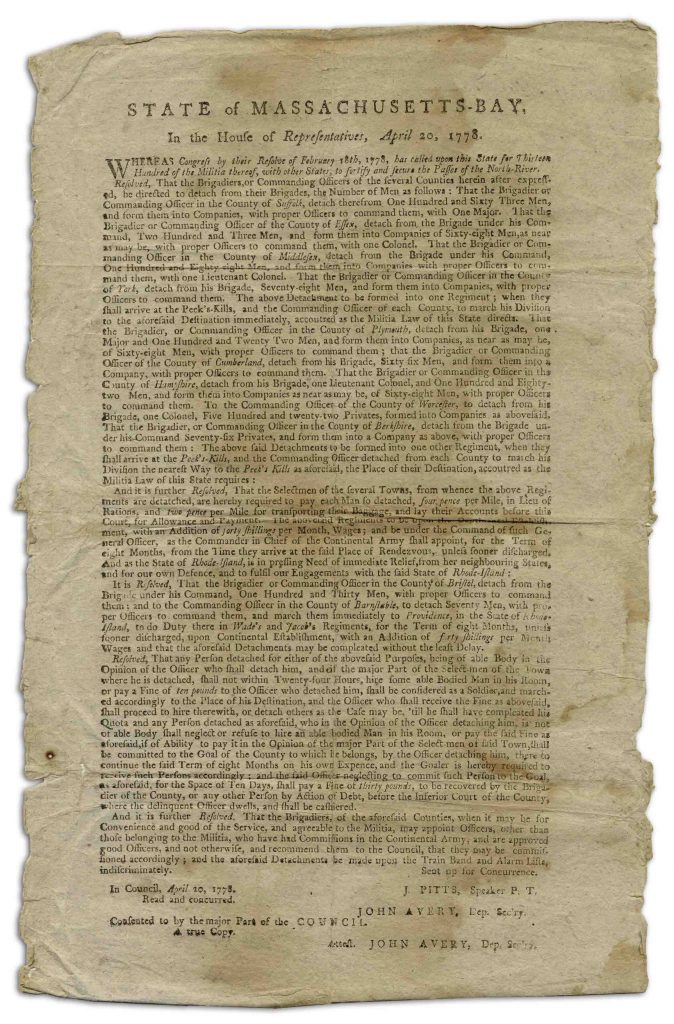 STATE of MASSACHUSETTS-BAY,
In the House of Representatives, April 20, 1778.
WHEREAS Congress by their Resolve of February 18th, 1778, has called upon this State for Thirteen
Hundred of the Militia thereof, with other States, to fortify and secure the Passes of the North-River.
Resolved, That the Brigadiers, or Commanding Officers of the several Counties herein after express-
ed, be directed to detach from their Brigades, the Number of Men as follows: That the Brigadier or
Commanding Officer in the County of Suffolk, detach therefrom One Hundred and Sixty Three Men,
and form them into Companies, with proper Officers to command them, with One Major. That the
Brigadier or Commanding Officer of the County of Essex, detach from the Brigade under his Com-
mand, Two Hundred and Three Men, and form them into Companies of Sixty-eight Men, as near
as may be, with proper Officers to command them, with one Colonel. That the Brigadier or Com-
manding Officer in the County of Middlesex, detach from the Brigade under his Command,
One Hundred and Eighty eight Men, and form them into Companies with proper Officers to com-
mand them, with one Lieutenant Colonel. That the Brigadier or Commanding Officer in the County
of York, detach from his Brigade, Seventy-eight Men, and form them into Companies, with proper
Officers to command them. The above Detachment to be formed into one Regiment; when they
shall arrive at the Peek's-Kills, and the Commanding Officer of each County, to march his Division
to the aforesaid Destination immediately, accoutred as the Militia Law of this State directs. That
the Brigadier, or Commanding Officer in the County of Plymouth, detach from his Brigade, one
Major and One Hundred and Twenty Two Men, and form them into Companies, as near as may be,
of Sixty-eight Men, with proper Officers to command them; that the Brigadier or Commanding
Officer of the County of Cumberland, detach from his Brigade, Sixty six Men, and form them into a
Company, with proper Officers to command them. That the Brigadier or Commanding Officer in the
County of Hampshire, detach from his Brigade, one Lieutenant Colonel, and One Hundred and Eighty-
two Men, and form them into Companies as near as may be, of Sixty-eight Men, with proper Officers
to command them. To the Commanding Officer of the County of Worcester, to detach from his
Brigade, one Colonel, Five Hundred and twenty-two Privates, formed into Companies as abovesaid,
That the Brigadier, or Commanding Officer in the County of Berkshire, detach from the Brigade un-
der his Command Seventy-six Privates, and form them into a Company as above, with proper Officers
to command them: The above said Detachments to be formed into one other Regiment, when they
shall arrive at the Peek's-Kills, and the Commanding Officer detached from each County to march his
Division the nearest Way to the Peek's Kills as aforesaid, the Place of their Destination, accoutred as the
Militia Law of this State requires:
And it is further Resolved, That the Selectmen of the several Towns, from whence the above Regi-
ments are detatched, are hereby required to pay each Man so detached, four pence per Mile, in Lieu of
Rations, and two pence per Mile for transporting their Baggage, and lay their Accounts before this
Court, for Allowance and Payment. The abovesaid Regiments to be upon the Continental Establish-
ment, with an Addition of forty shillings per Month, Wages; and be under the Command of such Ge-
neral Officer, as the Commander in Chief of the Continental Army shall appoint, for the Term of
eight Months, from the Time they arrive at the said Place of Rendezvous, unless sooner discharged.
And as the State of Rhode-Island, is in pressing Need of immediate Relief, from her neighbouring States,
and for our own Defence, and to fulfil our Engagements with the said State of Rhode-Island;
It is Resolved, That the Brigadier or Commanding Officer in the County of Bristol, detach from the
Brigade under his Command, One Hundred and Thirty Men, with proper Officers to command
them; and to the Commanding Officer in the County of Barnstable, to detach Seventy Men, with pro-
per Officers to command them, and march them immediately to Providence, in the State of Rhode-
Island, to do Duty there in Wade's and Jacob's Regiments, for the Term of eight Months, unless
sooner discharged, upon Continental Establishment, with an Addition of forty shillings per Month
Wages and that the aforesaid Detachments may be compleated without the least Delay.
Resolved, That any Person detached for either of the abovesaid Purposes, being of able Body in the
Opinion of the Officer who shall detach him, and of the major Part of the Select men of the Town
where he is detached, shall not within Twenty-four Hours, hire some able Bodied Man in his Room,
or pay a Fine of ten pounds to the Officer who detached him, shall be considered as a Soldier, and march-
ed accordingly to the Place of his Destination, and the Officer who shall receive the Fine as abovesaid,
shall proceed to hire therewith, or detach others as the Case may be, 'till he shall have compleated his
Quota and any Person detached as aforesaid, who in the Opinion of the Officer detaching him, is not
of able Body shall neglect or refuse to hire an able bodied Man in his Room, or pay the said Fine as
aforesaid, if of Ability to pay it in the Opinion of the major Part of the Select men of said Town, shall
be committed to the Goal of the County to which he belongs, by the Officer detaching him, there to
continue the said Term of eight Months on his own Expence, and the Goaler is hereby required to
receive such Persons accordingly; and the said Officer neglecting to commit such Person to the Goal,
as aforesaid, for the Space of Ten Days, shall pay a Fine of thirty pounds, to be recovered by the Briga-
dier of the County, or any other Person by Action of Debt, before the Inferior Court of the County,
where the delinquent Officer dwells, and shall be cashiered.
And it is further Resolved. That the Brigadiers, of the aforesaid Counties, when it may be for
Convenience and good of the Service, and agreeable to the Militia, may appoint Officers, other than
those belonging to the Militia, who have had Commissions in the Continental Army, and are approved
good Officers, and not otherwise, and recommend them to the Council, that they may be commis-
sioned accordingly; and the aforesaid Detachments be made upon the Train Band and Alarm Lists,
indiscriminately. Sent up for Concurrence.
J. PITTS, Speaker P. T.
In Council, April 20, 1778.
Read and concurred.
JOHN AVERY, Dep. Sec'ry.
Consented to by the major Part of the COUNCIL.
A true Copy.
Attest. JOHN AVERY, Dep. Sec'ry.